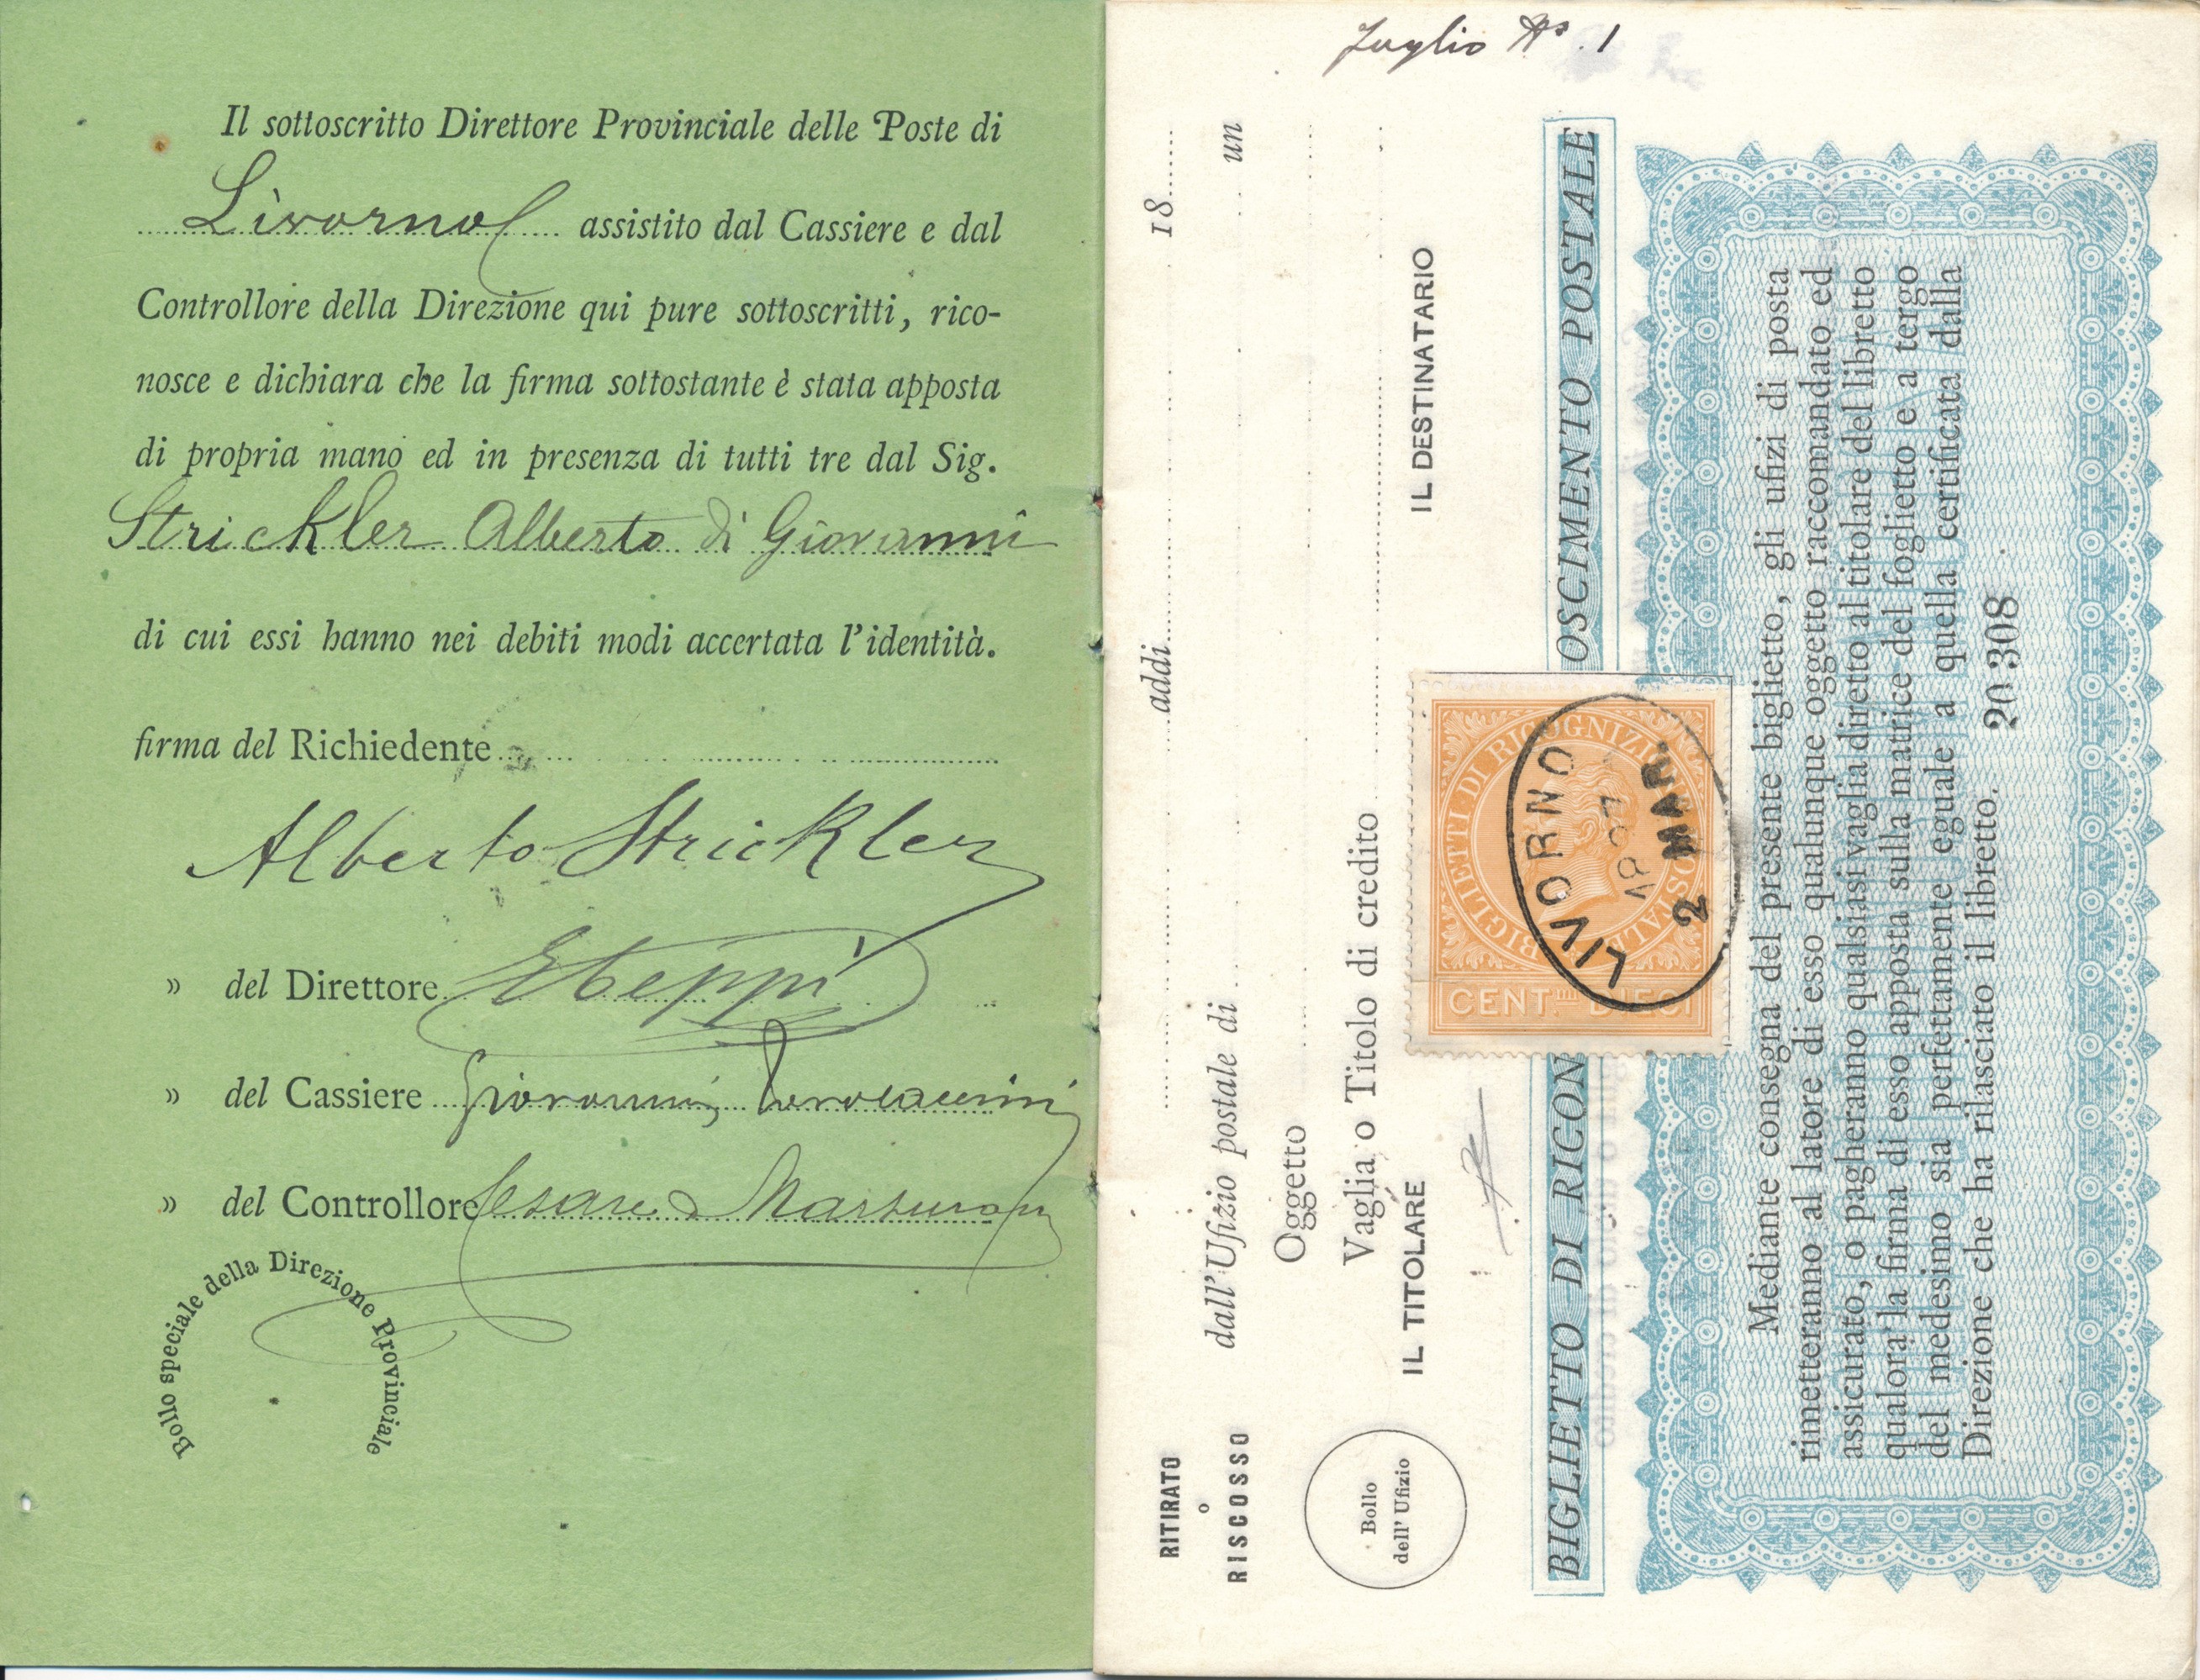 Il sottoscritto Direttore Provinciale delle Poste di
Livorno assistito dal Cassiere e dal
Controllore della Direzione qui pure sottoscritti, rico-
nosce e dichiara che la firma sottostante è stata apposta
di propria mano ed in presenza di tutti tre dal Sig.
Strickler Alberto di Giovanni
di cui essi hanno nei debiti modi accertata l'identità.
firma del Richiedente
Alberto Strickler
» del Direttore
» del Cassiere Giovanni
» del Controllore Cesare
Bollo speciale della Direzione Provinciale
Nº 1
RITIRATO
o
RISCOSSO
addì 18
dall'Ufizio postale di un
Oggetto
Vaglia o Titolo di credito
IL TITOLARE
IL DESTINATARIO
Bollo
dell'Ufizio
BIGLIETTO DI RICON OSCIMENTO POSTALE
BIGLIETTI DI RICOGNIZIONE POSTALE
CENT.MI DIECI
LIVORNO
97
2 MAR.
Mediante consegna del presente biglietto, gli ufizi di posta
rimetteranno al latore di esso qualunque oggetto raccomandato ed
assicurato, o pagheranno qualsiasi vaglia diretto al titolare del libretto
qualora la firma di esso apposta sulla matrice del foglietto e a tergo
del medesimo sia perfettamente eguale a quella certificata dalla
Direzione che ha rilasciato il libretto. 20 308